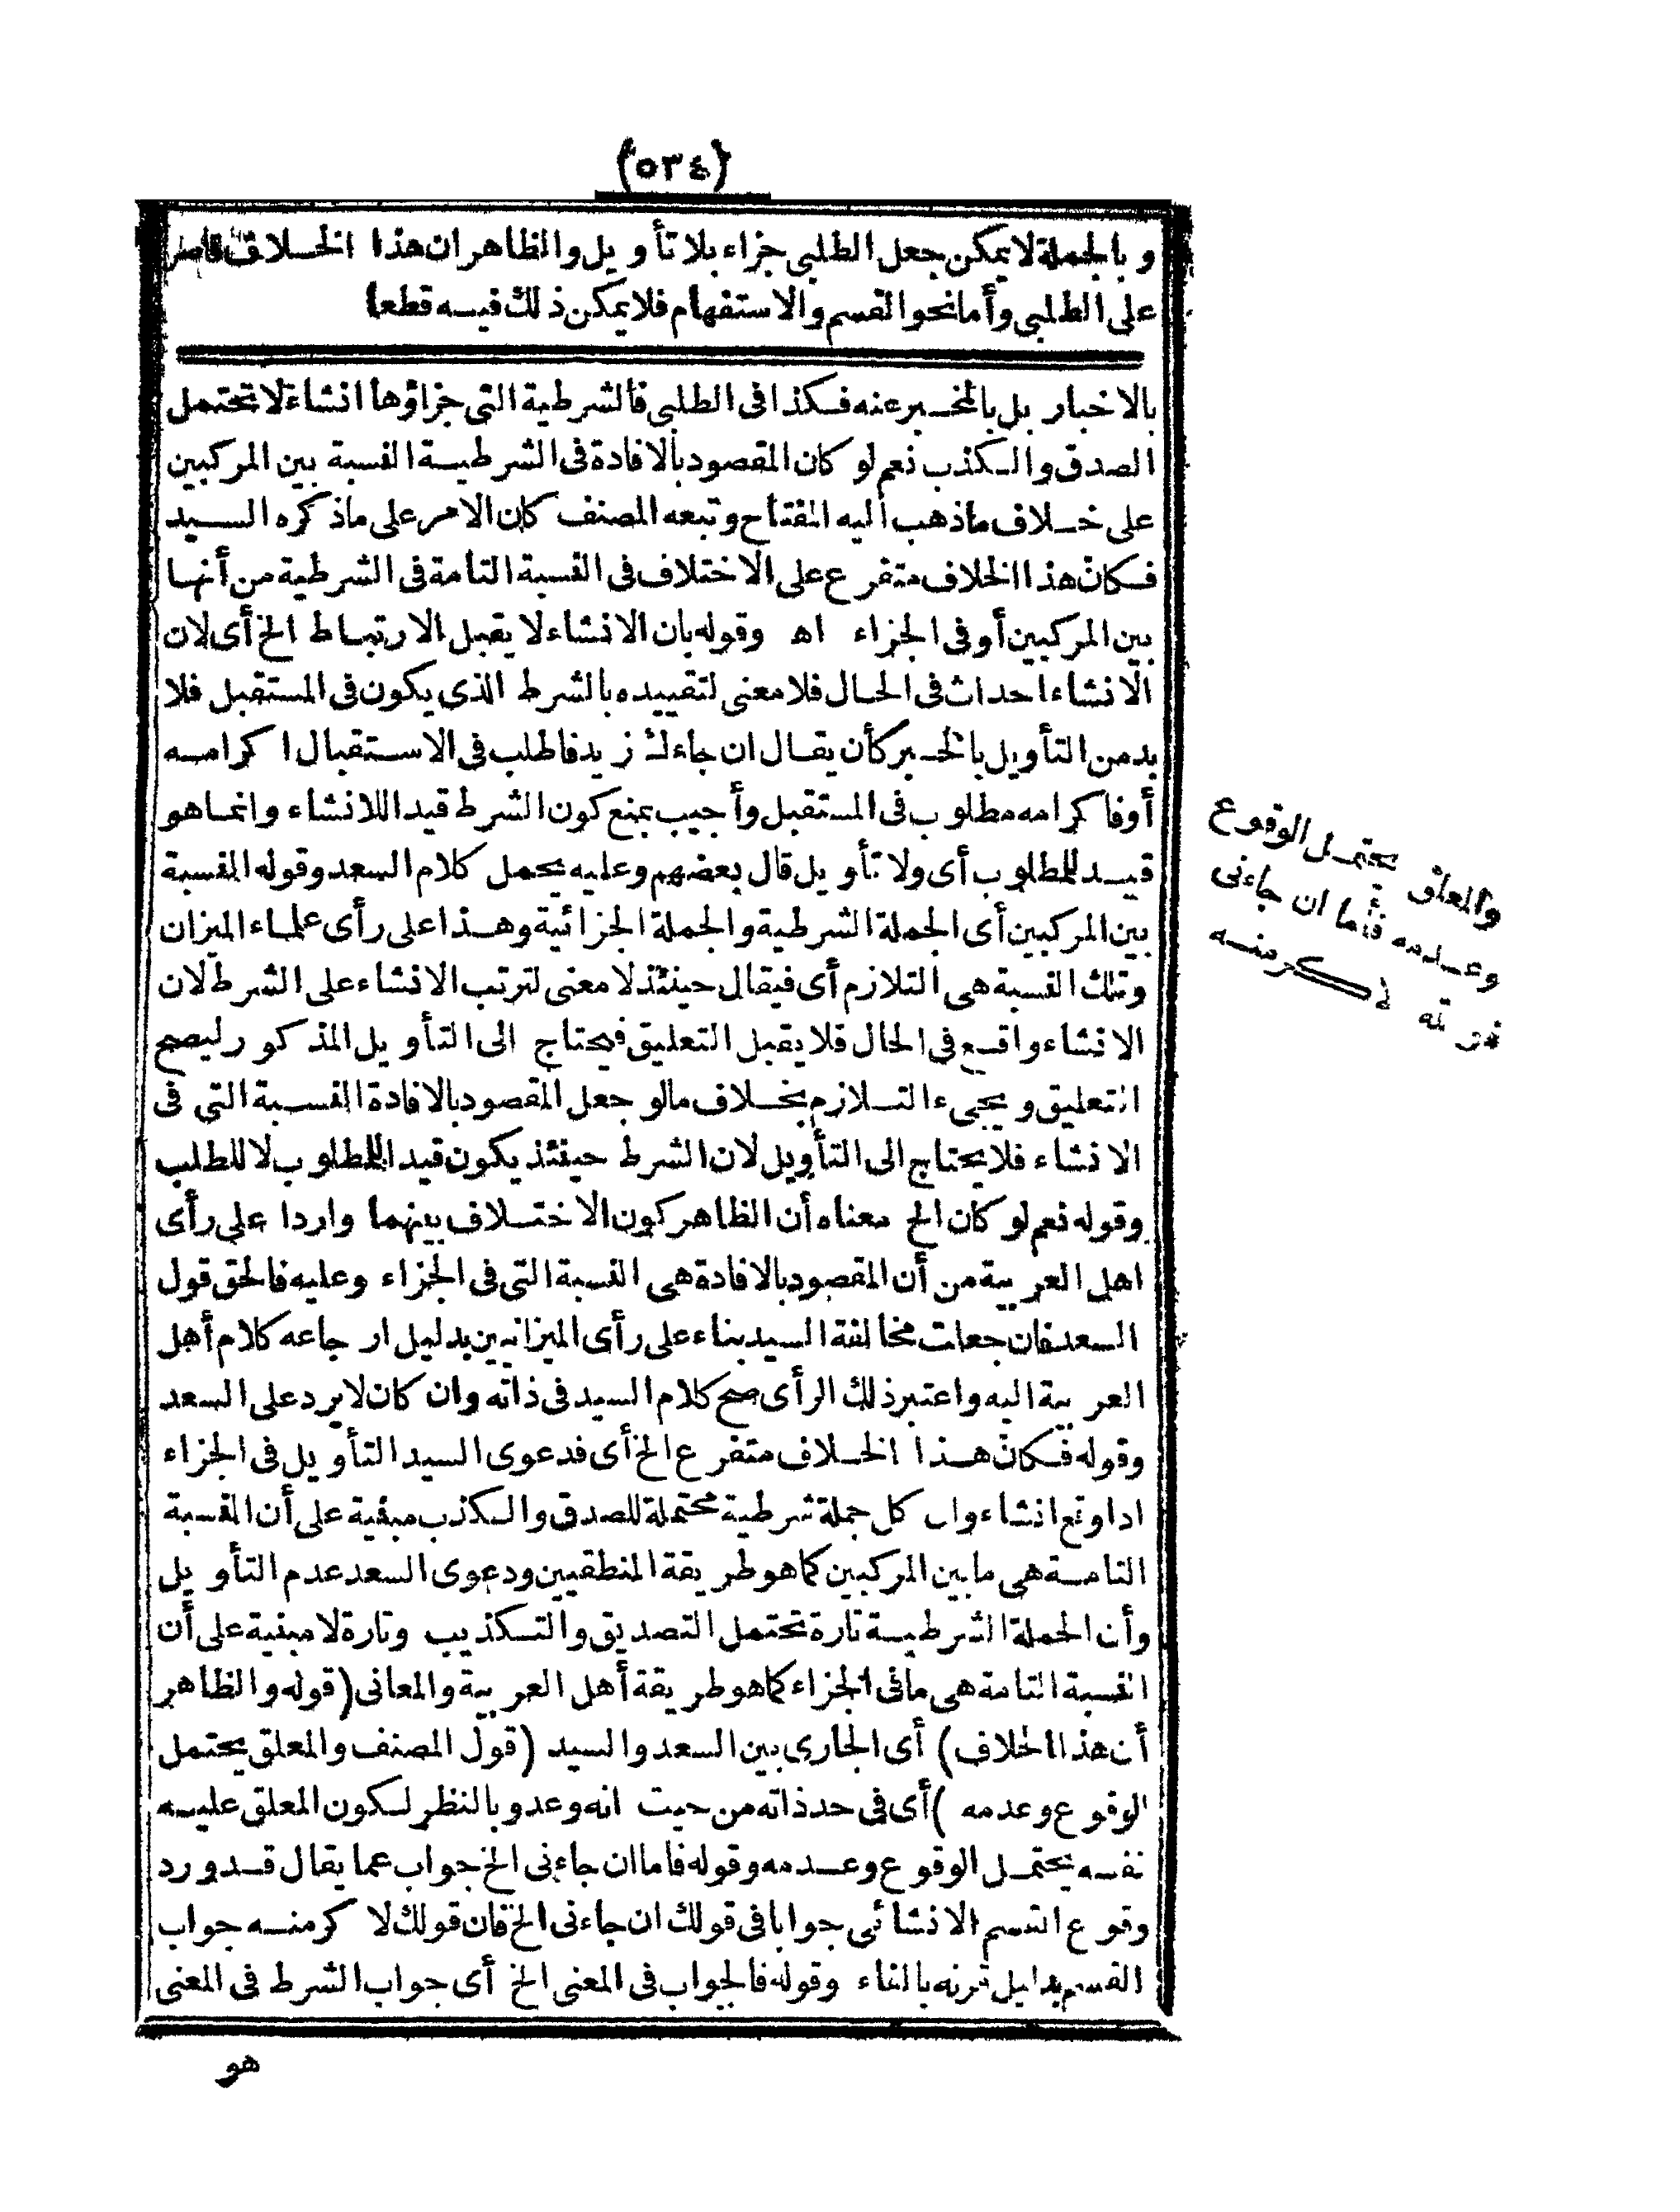 (٥٣٤)
وبالجملة لا يمكن جعل الطلبي جزاء بلا تأويل والظاهر ان هذا الخلاف قاصر
على الطلبي وأما نحو القسم والاستفهام فلا يمكن ذلك فيه قطعا
بالاخبار بل بالمخبر عنه فكذا في الطلبي فالشرطية التي جزاؤها انشاء لا تحتمل
الصدق والكذب نعم لو كان المقصود بالافادة في الشرطية النسبة بين المركبين
على خلاف ما ذهب اليه المفتاح وتبعه المصنف كان الامر على ما ذكره السيد
فكان هذا الخلاف متفرع على الاختلاف في النسبة التامة في الشرطية من أنها
بين المركبين أو في الجزاء اه وقوله بان الانشاء لا يقبل الارتباط الخ أى لان
الانشاء احداث في الحال فلا معنى لتقييده بالشرط الذى يكون في المستقبل فلا
بد من التأويل بالخبر كأن يقال ان جاءك زيد فاطلب في الاستقبال اكرامه
أو فاكرامه مطلوب في المستقبل وأجيب بمنع كون الشرط قيدا للانشاء وانما هو
قيد للمطلوب أى ولا تأويل قال بعضهم وعليه يحمل كلام السعد وقوله النسبة
بين المركبين أى الجملة الشرطية والجملة الجزائية وهذا على رأى علماء الميزان
وتلك النسبة هى التلازم أى فيقال حينئذ لا معنى لترتب الانشاء على الشرط لان
الانشاء واقع في الحال فلا يقبل التعليق فيحتاج الى التأويل المذكور ليصح
التعليق ويجىء التلازم بخلاف ما لو جعل المقصود بالافادة النسبة التي في
الانشاء فلا يحتاج الى التأويل لان الشرط حينئذ يكون قيدا للمطلوب لا للطلب
وقوله نعم لو كان الخ معناه أن الظاهر كون الاختلاف بينهما واردا على رأى
اهل العربية من أن المقصود بالافادة هى النسبة التي في الجزاء وعليه فالحق قول
السعد فان جعلت مخالفة السيد بناء على رأى الميزانيين بدليل ارجاعه كلام أهل
العربية اليه واعتبر ذلك الرأى صح كلام السيد في ذاته وان كان لا يرد على السعد
وقوله فكان هذا الخلاف متفرع الخ أى فدعوى السيد التأويل في الجزاء
اذا وقع انشاء وان كل جملة شرطية محتملة للصدق والكذب مبنية على أن النسبة
التامة هى ما بين المركبين كما هو طريقة المنطقيين ودعوى السعد عدم التأويل
وأن الجملة الشرطية تارة تحتمل التصديق والتكذيب وتارة لا مبنية على أن
النسبة التامة هى ما في الجزاء كما هو طريقة أهل العربية والمعاني (قوله والظاهر
أن هذا الخلاف) أى الجارى بين السعد والسيد (قول المصنف والمعلق يحتمل
الوقوع وعدمه) أى في حد ذاته من حيث انه وعد وبالنظر لكون المعلق عليه
نفسه يحتمل الوقوع وعدمه وقوله فاما ان جاءنى الخ جواب عما يقال قد ورد
وقوع القسم الانشائى جوابا في قولك ان جاءنى الخ فان قولك لاكرمنه جواب
القسم بدليل قرنه بالفاء وقوله فالجواب في المعنى الخ أى جواب الشرط في المعنى
هو
والمعلق يحتمل الوقوع
وعدمه فأما ان جاءنى
فو الله لاكرمنه